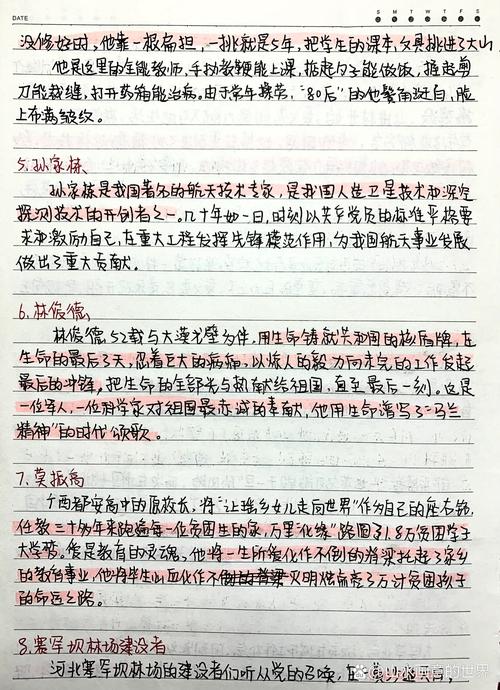 DATE
S M T W T F S
没修好时,他靠一根扁担,一挑就是5年,把学生的课本、文具挑进了大山
他是这里的全能教师,手执教鞭能上课,掂起勺子能做饭,握起剪
刀能裁缝,打开药箱能治病。由于常年操劳,“80后”的他鬓角斑白,脸
上布满皱纹。
5.孙家栋
孙家栋是我国著名的航天技术专家,是我国人造卫星技术和深空
探测技术的开创者之一。几十年如一日,时刻以共产党员的标准严格要
求和激励自己,在重大工程发挥先锋模范作用,为我国航天事业发展
做出了重大贡献。
6.林俊德
林俊德52载与大漠戈壁为伴,用生命铸就共和国的核盾牌,在
生命的最后3天,忍着巨大的病痛,以惊人的毅力向未完的工作发起
最后的冲锋,把生命的全部光与热献给祖国,直至最后一刻。这是
一位军人,一位科学家对祖国最赤诚的奉献,他用生命谱写了“马兰
精神”的时代颂歌。
7.莫振高
广西都安高中的原校长,将“让瑶乡女儿走向世界”作为自己的座右铭,
任教三十多年来跑遍每一位贫困生的家,万里“化缘”路圆了1.8万贫困学子
大学梦。他是教育的灵魂,他将一生所能化作不倒的脊梁托起了家乡
的教育事业,他将毕生心血化作不倒的脊梁灭明灯点亮了万计贫困孩子
的命运之路。
8.塞罕坝林场建设者
河北塞罕坝林场的建设者们听从党的召唤,在